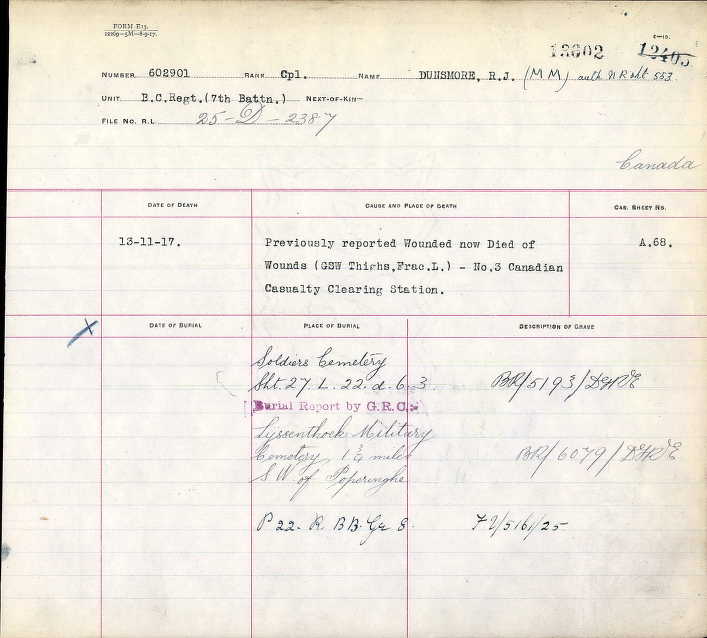 FORM E13.
12169—5M—8-9-17.
E—10.
13602 12405
NUMBER 602901 RANK Cpl. NAME DUNSMORE, R.J. (MM) auth N R sht 553.
UNIT B.C.Regt.(7th Battn.) NEXT-OF-KIN—
FILE No. R.L. 25-D-2387
Canada
DATE OF DEATH CAUSE AND PLACE OF DEATH CAS. SHEET NO.
13-11-17. Previously reported Wounded now Died of A.68.
Wounds (GSW Thighs,Frac.L.) - No,3 Canadian
Casualty Clearing Station.
X DATE OF BURIAL PLACE OF BURIAL DESCRIPTION OF GRAVE
Soldiers Cemetery
Sht. 27. L. 22. d. 6. 3. BR/5193/DGR&E
Burial Report by G.R.C.
Lyssenthoek Military
Cemetery 1 3/4 miles BR/6079/DGR&E
S W of Poperinghe
P 22. R. BB. Gr 8.